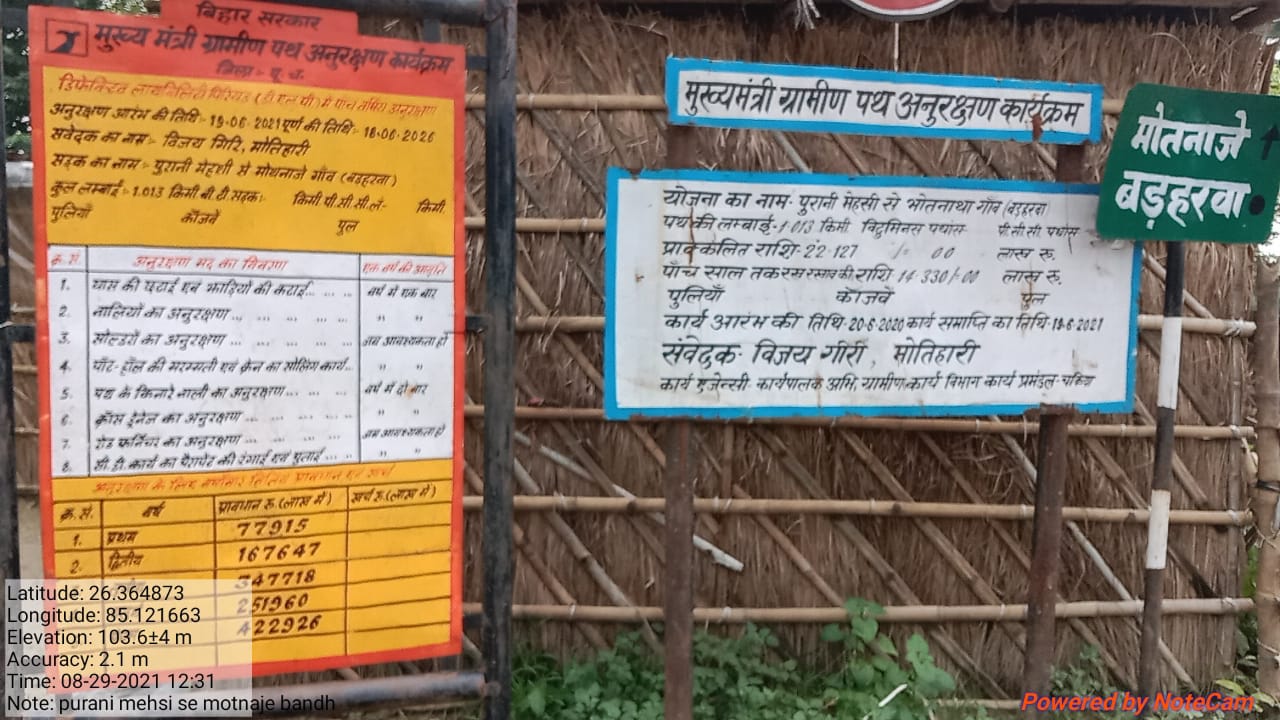 बिहार सरकार
मुख्य मंत्री ग्रामीण पथ अनुरक्षण कार्यक्रम
जिला:- पू. च.
डिफेक्टिव लायबिलिटी पिरियड (डी.एल.पी.) में पांच वर्षीय अनुरक्षण
अनुरक्षण आरंभ की तिथि:- 19-06-2021 पूर्ण की तिथि:- 18-06-2026
संवेदक का नाम:- विजय गिरि, मोतिहारी
सड़क का नाम:- पुरानी मेहशी से मोथनाजे गाँव (बड़हरवा)
कुल लम्बाई:- 1.013 किमी बी.टी.सड़क:- किमी.पी.सी.सी.ले- किमी.
पुलियाँ कॉजवे पुल
क्र.सं. अनुरक्षण मद का विवरण एक वर्ष की आवृति
1. घास की छटाई एवं झाड़ियों की कटाई... ... .. वर्ष में एक बार
2. नालियों का अनुरक्षण ... ... ... ... ... " "
3. सोल्डरों का अनुरक्षण ... ... ... ... जब आवश्यकता हो
4. पॉट-हॉल की मरम्मती एवं क्रेन का सीलिंग कार्य... " "
5. पथ के किनारे नाली का अनुरक्षण... ... ... वर्ष में दो बार
6. क्रॉस ड्रेनेज का अनुरक्षण ... ... ... ... " "
7. रोड फर्निचर का अनुरक्षण ... ... ... ... जब आवश्यकता हो
8. सी.डी.कार्य का पैरापेट की रंगाई एवं पुताई ... " "
अनुरक्षण के लिए वर्षवार वित्तिय प्रावधान एवं खर्च
क्र.सं. वर्ष प्रावधान रु.(लाख में) खर्च रु.(लाख में)
1. प्रथम 77915
2. द्वितीय 167647
347718
251960
422926
मुख्यमंत्री ग्रामीण पथ अनुरक्षण कार्यक्रम
योजना का नाम- पुरानी मेहसी से भोतनाथा गाँव (बड़हरवा)
पथ की लम्बाई:-1 013 किमी विटुमिनस पथांस पी.सी.सी पथांस
प्राक्कलित राशि-22-127 /= 00 लाख रु.
पाँच साल तक रख रखाव की राशि 14-330/-00 लाख रु.
पुलियाँ कॉजवे पुल
कार्य आरंभ की तिथि-20-6-2020 कार्य समाप्ति का तिथि-19-6-2021
संवेदक- विजय गीरी, मोतिहारी
कार्य एजेन्सी-कार्यपालक अभि. ग्रामीण कार्य विभाग कार्य प्रमंडल-
मोतनाजे ↑
बड़हरवा
Latitude: 26.364873
Longitude: 85.121663
Elevation: 103.6±4 m
Accuracy: 2.1 m
Time: 08-29-2021 12:31
Note: purani mehsi se motnaje bandh
Powered by NoteCam